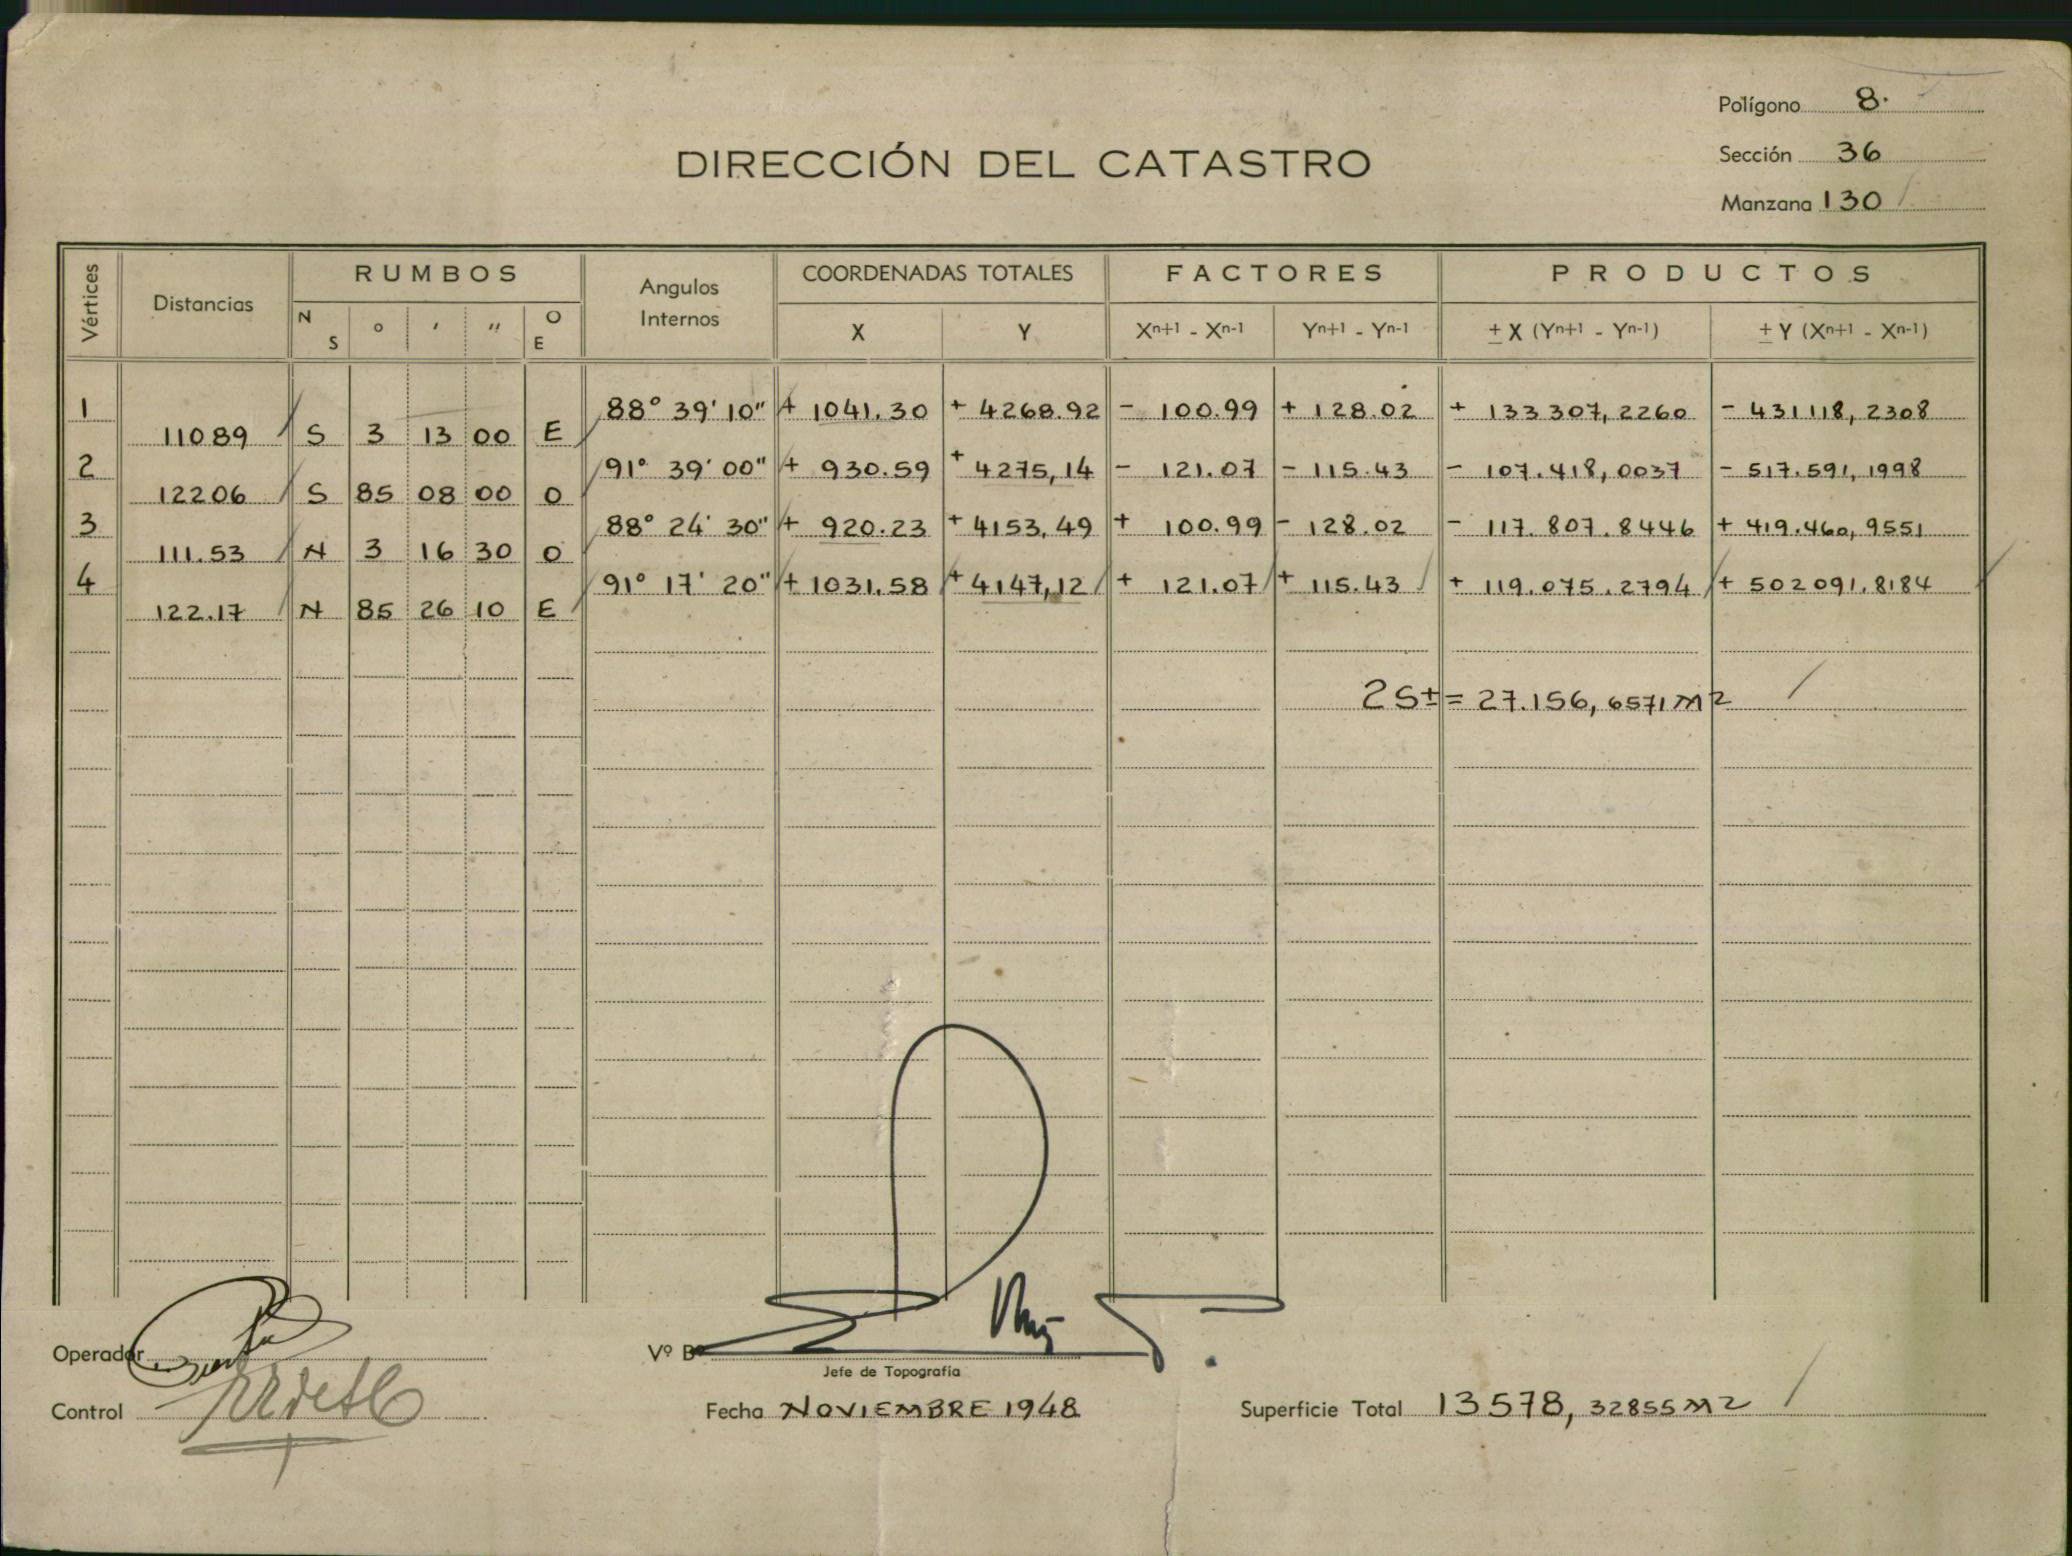 Polígono 8.
DIRECCIÓN DEL CATASTRO
Sección 36
Manzana 130
Vértices Distancias RUMBOS Angulos Internos COORDENADAS TOTALES FACTORES PRODUCTOS
N S ° ' " O E X Y Xn+1 - Xn-1 Yn+1 - Yn-1 ± X (Yn+1 - Yn-1) ± Y (Xn+1 - Xn-1)
1 88° 39' 10" + 1041.30 + 4268.92 - 100.99 + 128.02 + 133307,2260 - 431118,2308
110 89 S 3 13 00 E
2 91° 39' 00" + 930.59 + 4275,14 - 121.07 - 115.43 - 107.418,0037 - 517.591,1998
122 06 S 85 08 00 O
3 88° 24' 30" + 920.23 + 4153,49 + 100.99 - 128.02 - 117.807.8446 + 419.460,9551
111.53 N 3 16 30 O
4 91° 17' 20" + 1031.58 + 4147,12 + 121.07 + 115.43 + 119.075.2794 + 502091.8184
122.17 N 85 26 10 E
2 S± = 27.156,6571 M2
Operador
Vº Bº
Jefe de Topografía
Control
Fecha NOVIEMBRE 1948
Superficie Total 13578,32855 M2